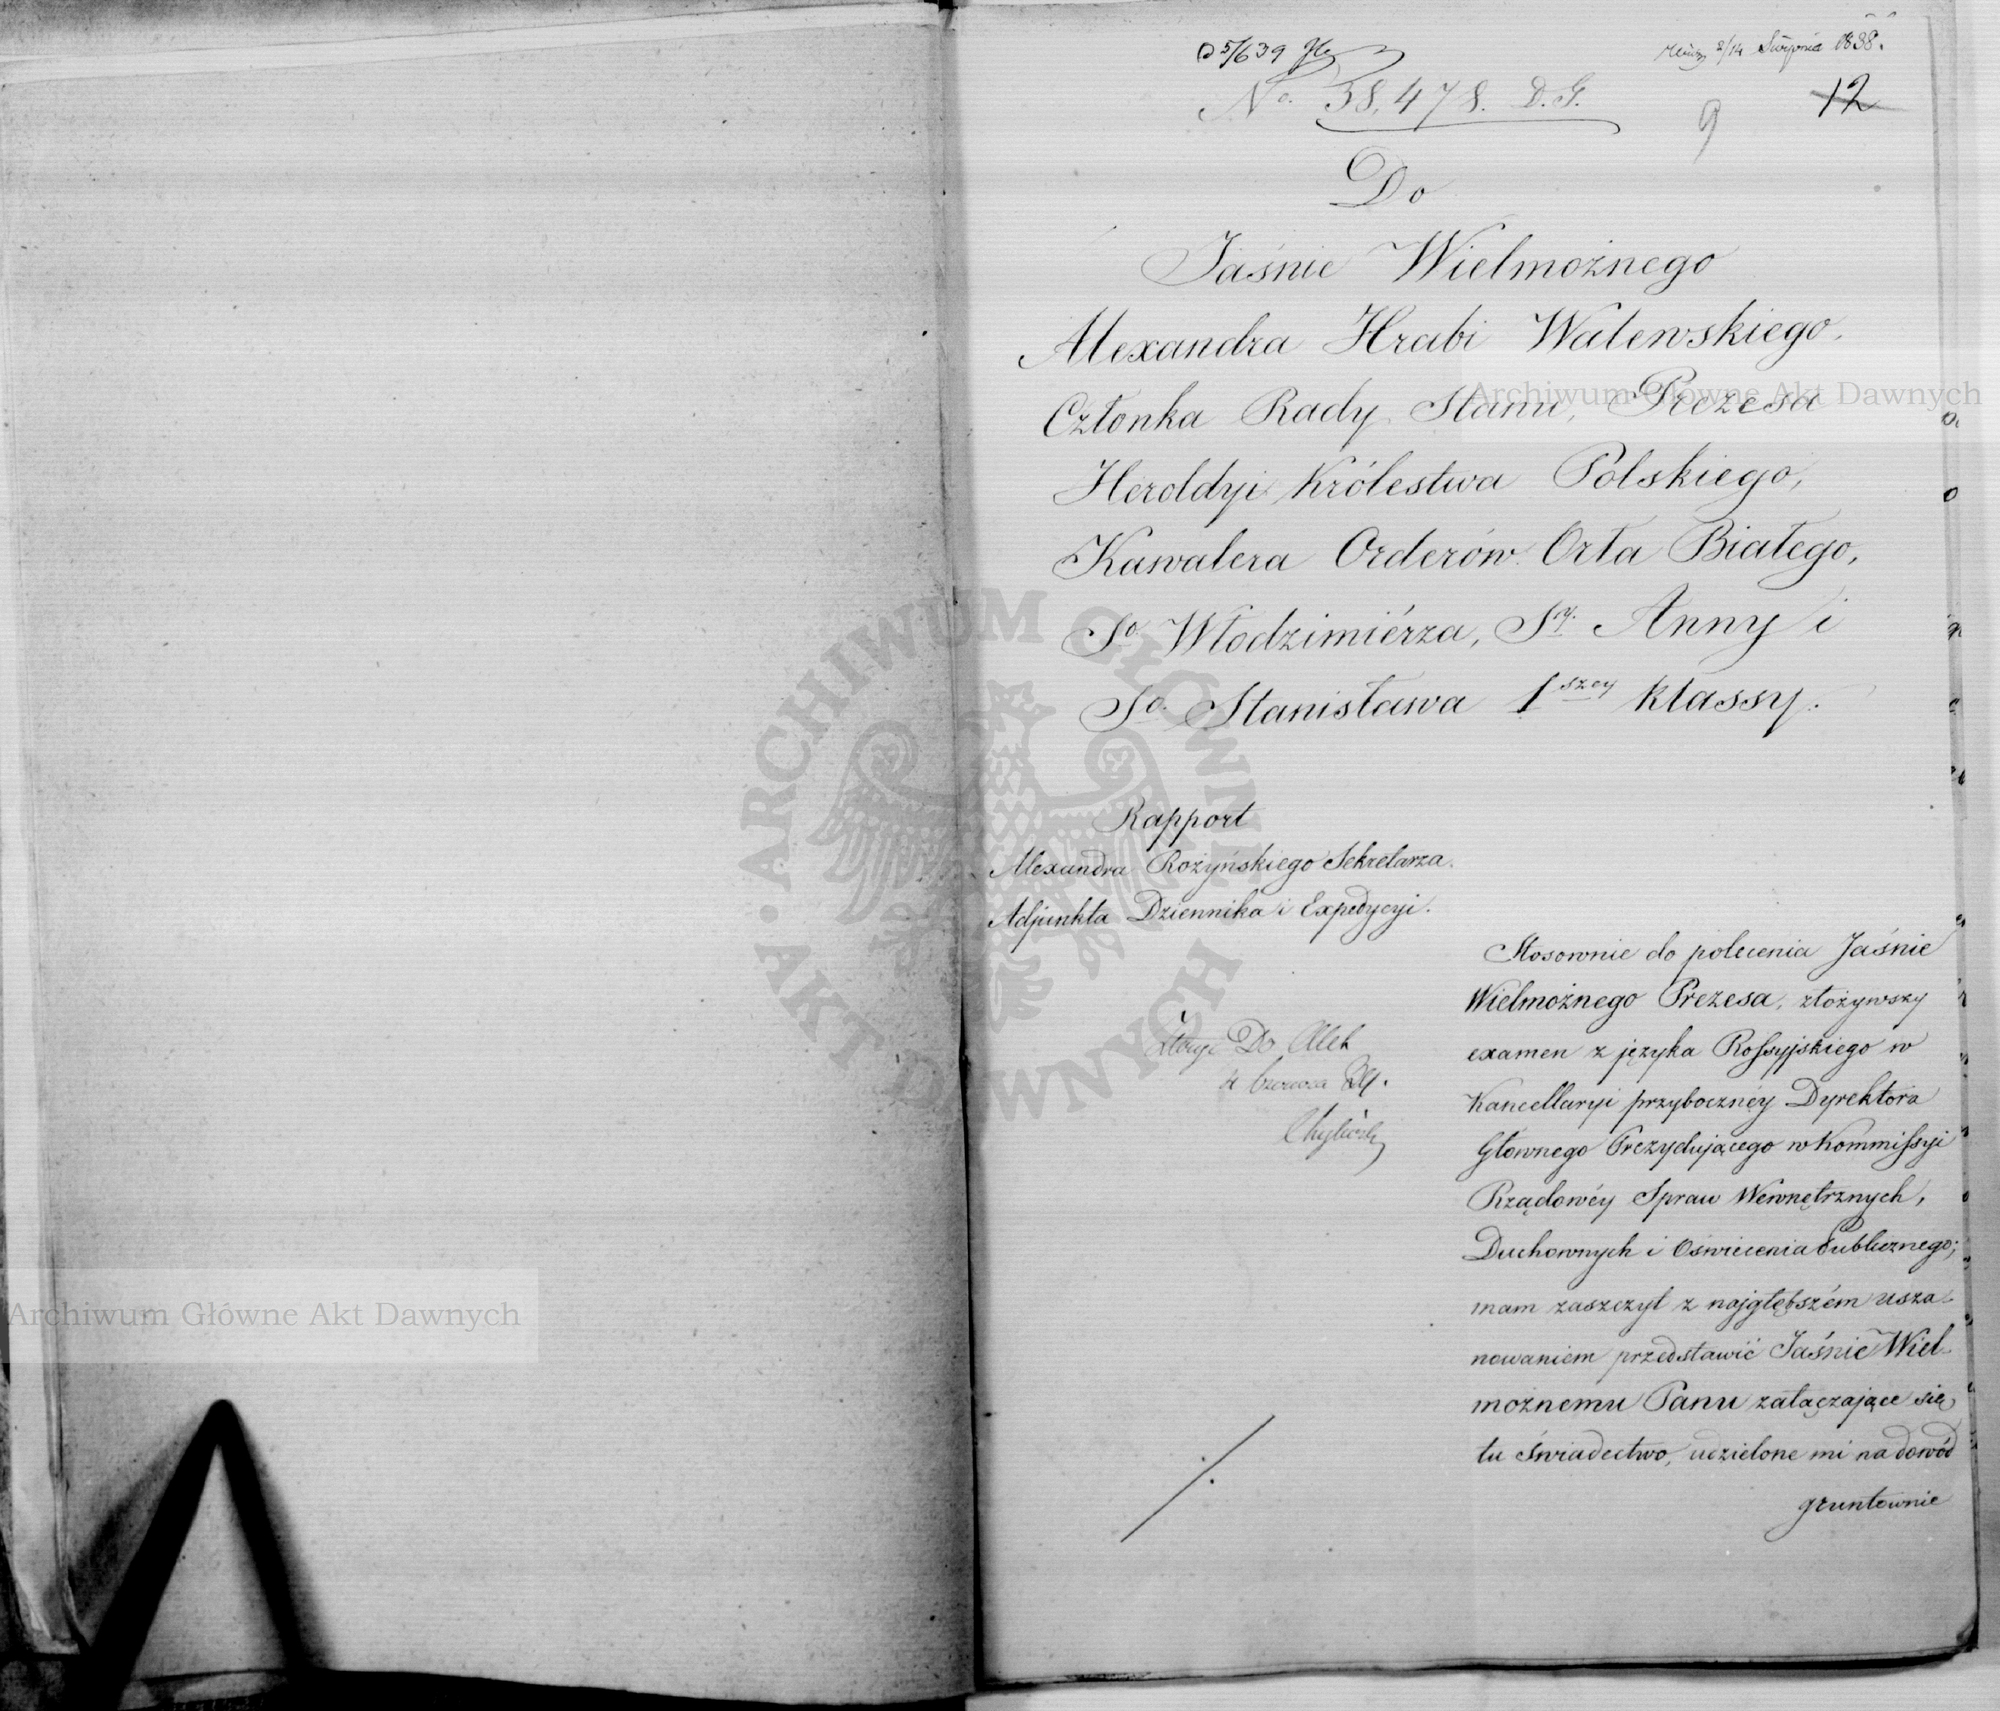 N° 38,478. D. G.
2/14 Sierpnia 1838.
9
12
Do
Jaśnie Wielmożnego
Alexandra Hrabi Walewskiego.
Członka Rady Stanu, Prezesa
Heroldyi Królestwa Polskiego,
Kawalera Orderów Orła Białego,
So Włodzimiérza, Sy. Anny i
So. Stanisława 1szey klassy.
Rapport
Alexandra Rożyńskiego Sekretarza
Adjunkta Dziennika i Expedycyi.
Stosownie do polecenia Jaśnie
Wielmożnego Prezesa, złożywszy
examen z języka Rossyjskiego w
Kancellaryi przybocznéy Dyrektora
Głownego Prezydującego w Kommissyi
Rządowéy Spraw Wewnętrznych,
Duchownych i Oświecenia Publicznego;
mam zaszczyt z najgłębszém usza-
nowaniem przedstawić Jaśnie Wiel-
możnemu Panu załączające się
tu świadectwo, udzielone mi na dowód
gruntownie
Do Akt
Archiwum Główne Akt Dawnych
Archiwum Główne Akt Dawnych
ARCHIWUM GŁÓWNE AKT DAWNYCH